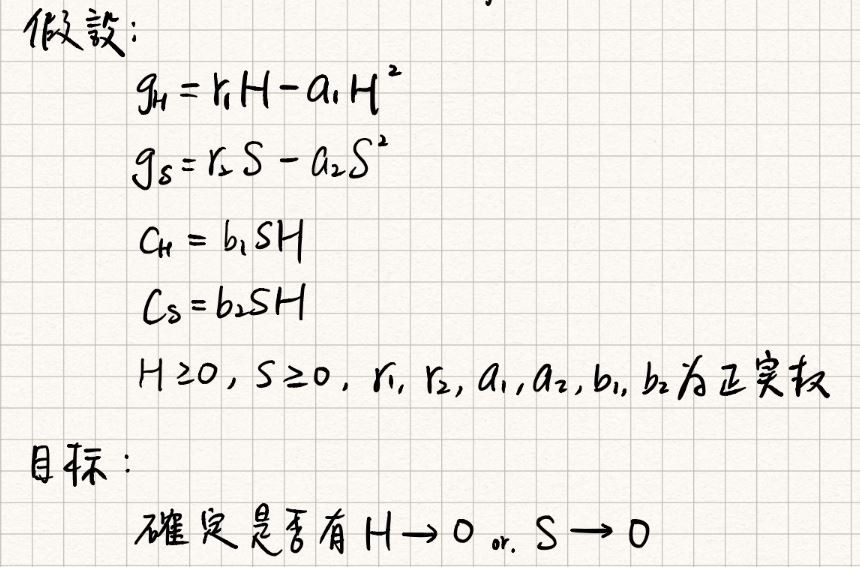 假設:
g_H = r₁H - a₁H²
g_S = r₂S - a₂S²
C_H = b₁SH
C_S = b₂SH
H ≥ 0, S ≥ 0, r₁, r₂, a₁, a₂, b₁, b₂ 为正实数
目标:
確定是否有 H → 0 or. S → 0